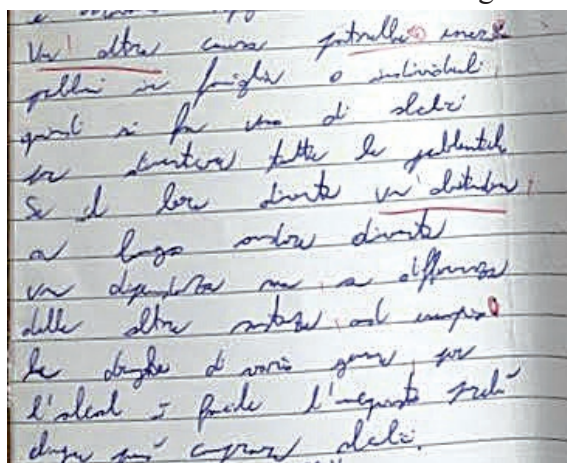 Un' altra causa potrebbe essere
problemi in famiglia o individuali,
quindi si fa uso di alcolici
per dimenticare tutte le problematiche
Se il bere diventa un' abitudine,
a lungo andare diventa
una dipendenza ma, a differenza
delle altre sostanze, ad esempio
le droghe di vario genere, per
l'alcol è facile l'acquisto perché
chiunque può comprare alcolici.